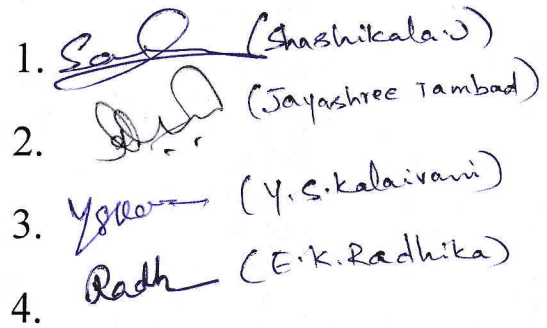 1. (Shashikala.J)
2. (Jayashree Tambad)
3. (Y.S.Kalaivani)
4. Radh (E.K.Radhika)